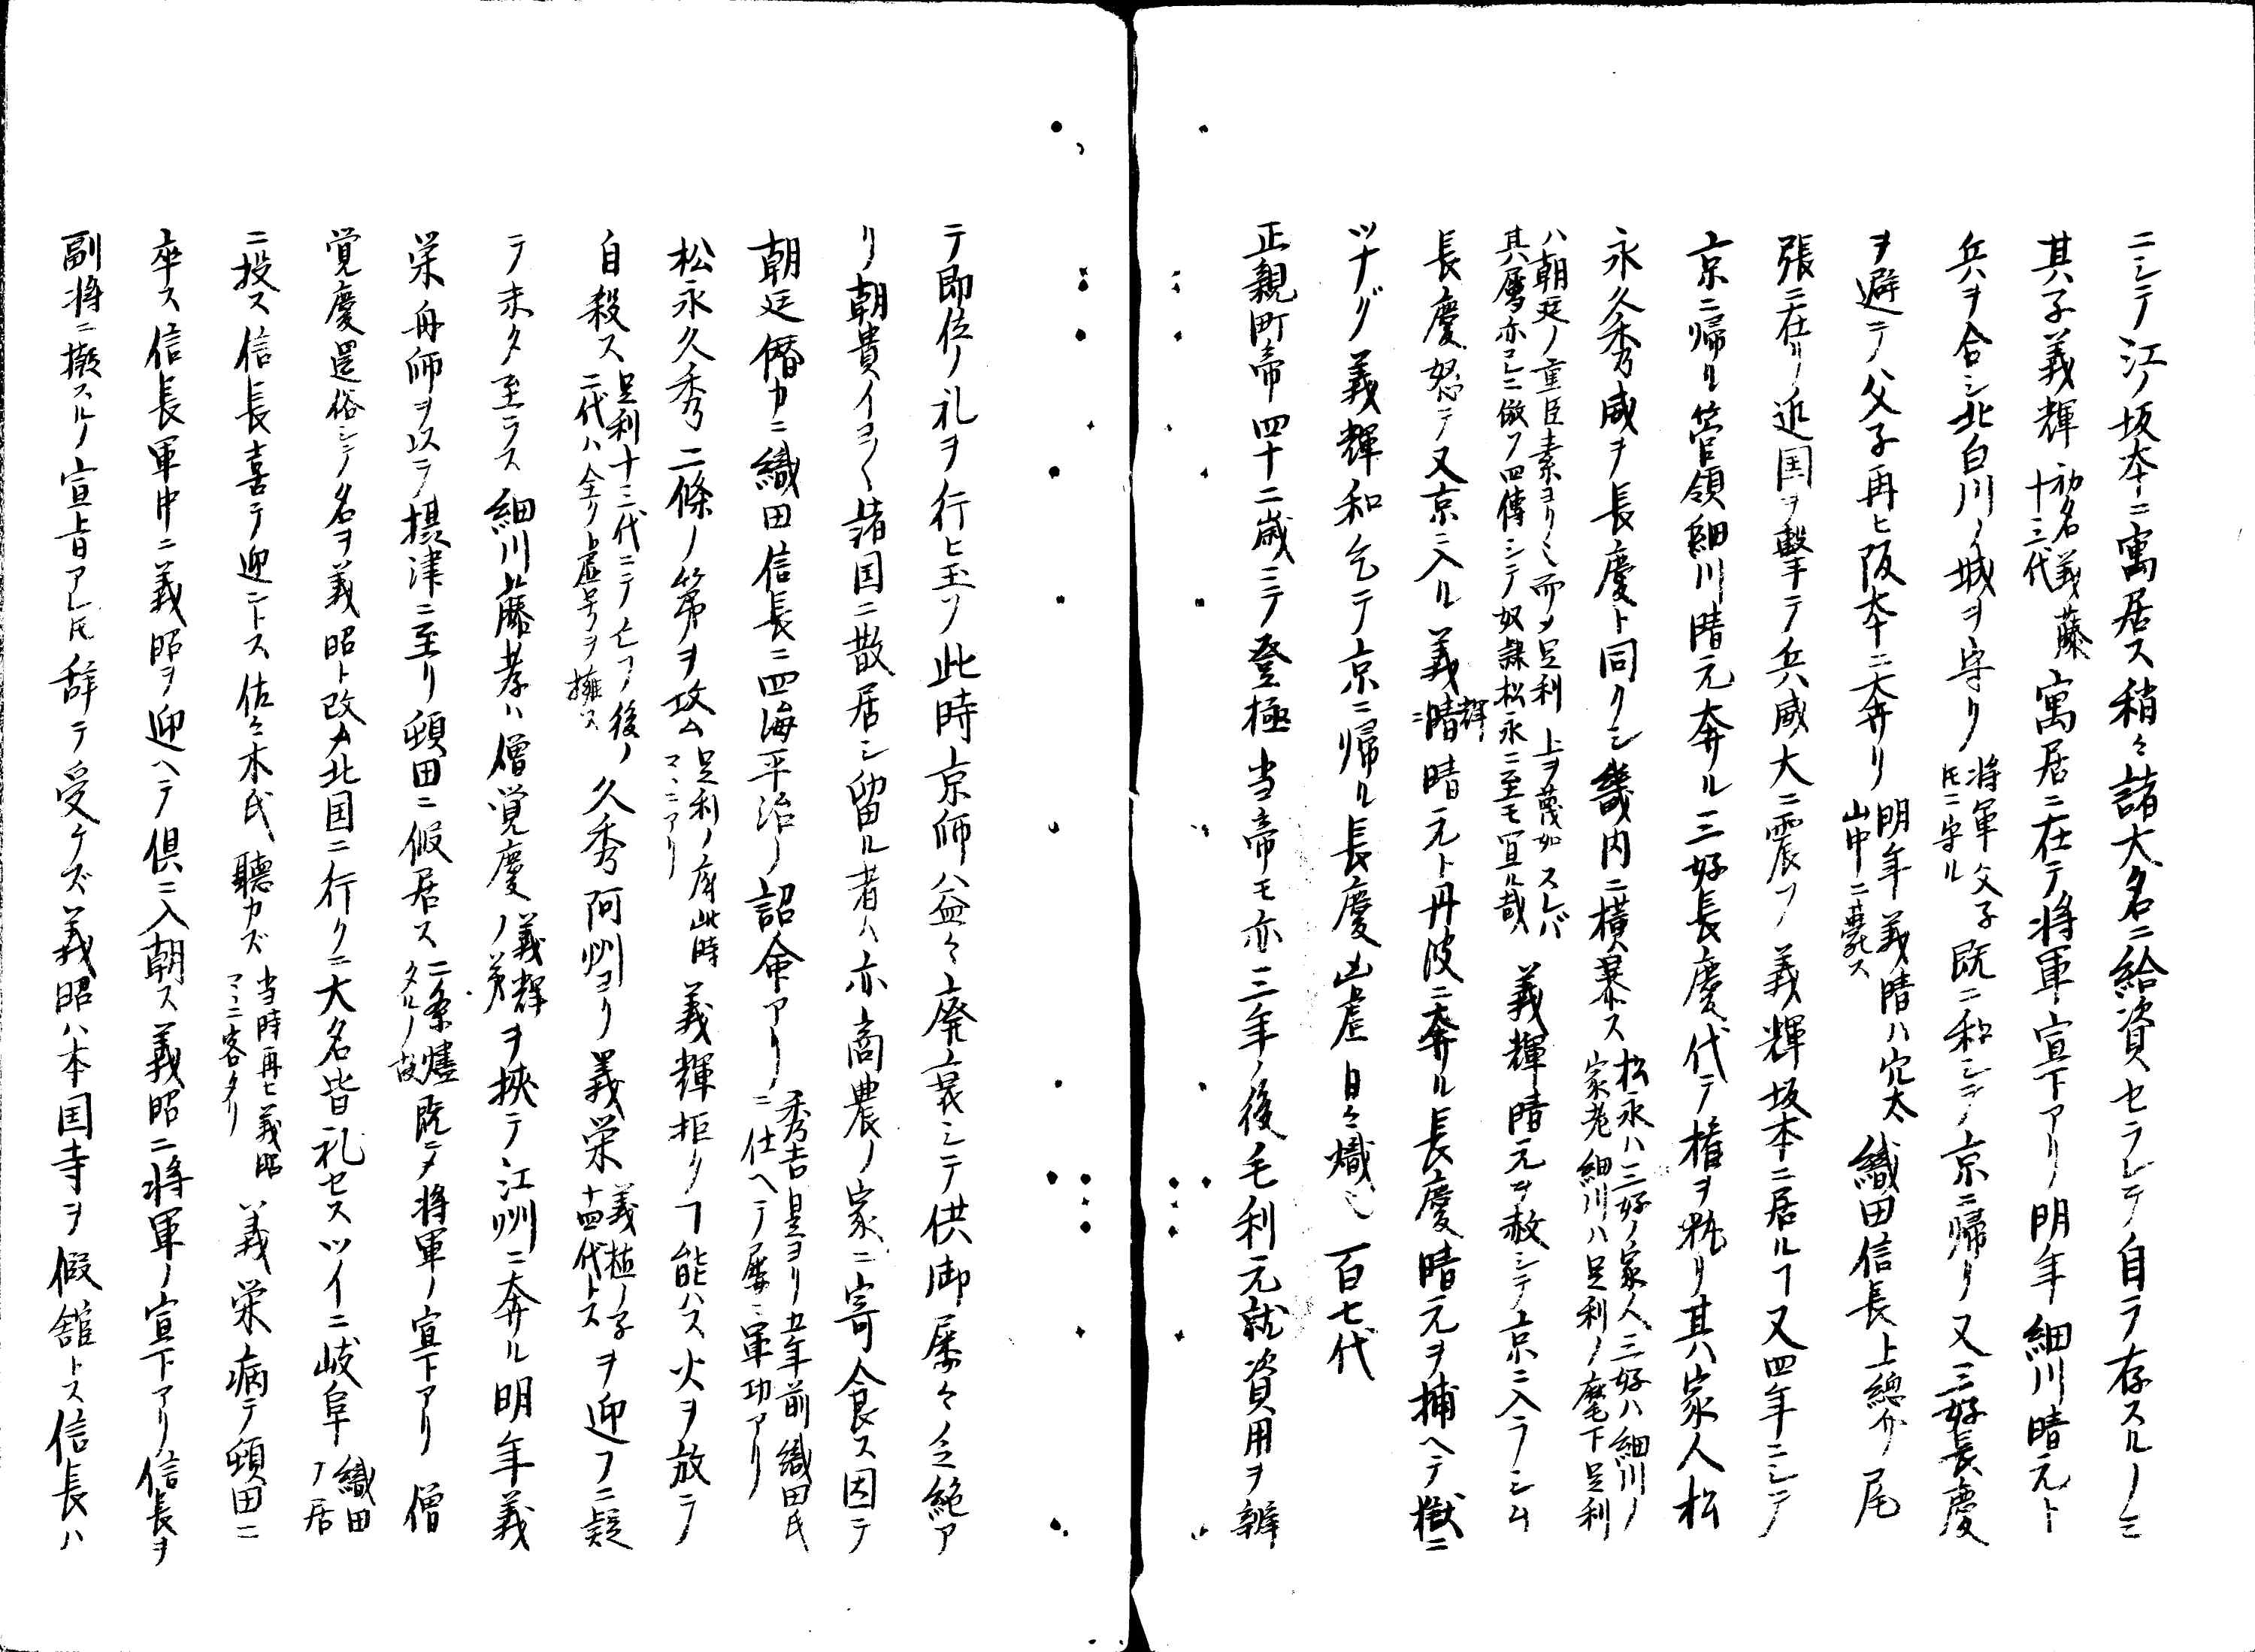 ニシテ江ノ坂本ニ寓居ス稍々諸大名ニ給資セラレテ自ラ存スルノミ
其子義輝初名義藤十三代寓居ニ在テ将軍宣下アリ明年細川晴元ト
兵ヲ合シ北白川ノ城ヲ守リ将軍父子氏ニ守ル既ニ和シテ京ニ帰リ又三好長慶
ヲ避テ父子再ヒ阪本ニ奔リ明年義晴ハ穴太山中ニ薨ス織田信長上總介尾
張ニ在リ近国ヲ撃テ兵威大ニ震フ義輝坂本ニ居ルヿ又四年ニシテ
京ニ帰ル管領細川晴元奔ル三好長慶代テ権ヲ執リ其ノ家人松
永久秀乃威ヲ長慶ト同クシ畿内ニ横暴ス松永ハ三好ノ家人三好ハ細川ノ家老細川ハ足利ノ麾下足利
ハ朝廷ノ重臣素ヨリ而〆足利上ヲ蔑如スレバ其属亦コレニ倣フ四傳シテ奴隷松永ニ至モ宜ル哉義輝晴元ヲ赦シテ京ニ入ラシム
長慶怒テ又京ニ入ル義輝晴元ト丹波ニ奔ル長慶晴元ヲ捕ヘテ獄ニ
ツナグ義輝和乞テ京ニ帰ル長慶凶虐日々熾也百七代
正親町帝四十二歳ニテ登極当帝モ亦三年ノ後毛利元就資用ヲ辨
テ即位ノ礼ヲ行ヒ玉フ此時京師ハ益々廃衰シテ供御屡々乏絶ア
リ朝貴イヨ〱諸国ニ散居シ留ル者ハ亦商農ノ家ニ寄食ス因テ
朝廷僭カニ織田信長ニ四海平治ノ詔命アリ秀吉是ヨリ五年前織田氏ニ仕ヘテ屡々軍功アリ
松永久秀二條ノ第ヲ攻ム足利ノ府此時マヽニアリ義輝拒クヿ能ハス火ヲ放テ
自殺ス足利十三代ニテ亡フ後ノ二代ハ全ク虚号ヲ擁ス久秀阿州ヨリ義栄義植ノ子十四代トスヲ迎フニ疑
テ未タ至ラス細川藤孝ハ僧覚慶義輝ノ弟ヲ挾テ江州ニ奔ル明年義
栄舟師ヲ以テ摂津ニ至リ頓田ニ假居ス二条燼タルノ故既ニ〆将軍ノ宣下アリ僧
覚慶還俗シテ名ヲ義昭ト改ム北国ニ行クニ大名皆礼セスツイニ岐阜織田ノ居
ニ投ス信長喜テ迎ントス佐々木氏聴カズ当時再ヒ義昭マヽニ客タリ義栄病テ頓田ニ
卒ス信長軍中ニ義昭ヲ迎ヘテ倶ニ入朝ス義昭ニ将軍ノ宣下アリ信長ヲ
副将ニ擬スルノ宣旨アレ𪜈辞テ受ケズ義昭ハ本国寺ヲ假舘トス信長ハ